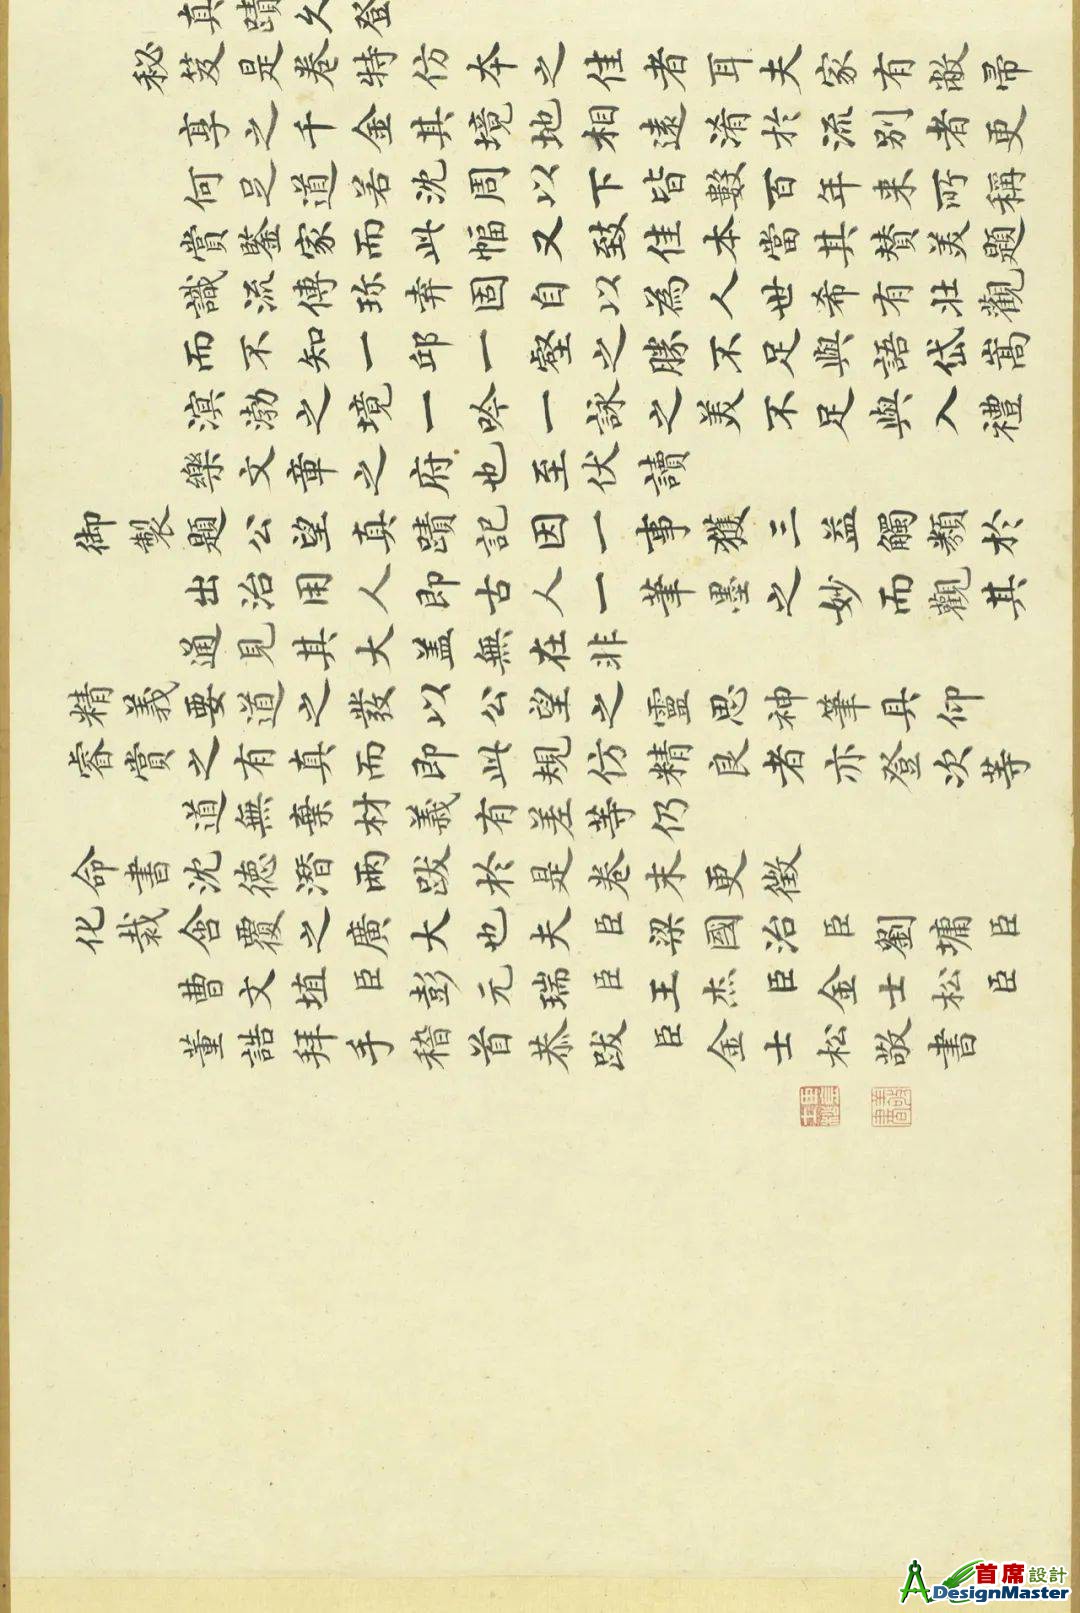 真蹟久登
秘笈是卷特仿本之佳者耳夫家有敝帚
享之千金其境地相遠淆於流別者更
何足道若沈周以下皆數百年来所稱
賞鑒家而此幅又致佳本當其賛美題
識流傳珎弆固自以為人世希有壯觀
而不知一邱一壑之勝不足與語岱嵩
溟渤之境一吟一詠之美不足與入禮
樂文章之府也至伏讀
御製題公望真蹟記因一事獲三益觸類於
出治用人即古人一筆墨之妙而觀其
通見其大蓋無在非
精義要道之發以公望之靈思神筆具仰
睿賞之有真而即此規仿精良者亦登次等
道無棄材義有差等仍
命書沈德潛兩跋於是卷末更徵
化裁含覆之廣大也夫臣梁國治臣劉墉臣
曹文埴臣彭元瑞臣王杰臣金士松臣
董誥拜手稽首恭跋臣金士松敬書
首席設計
DesignMaster